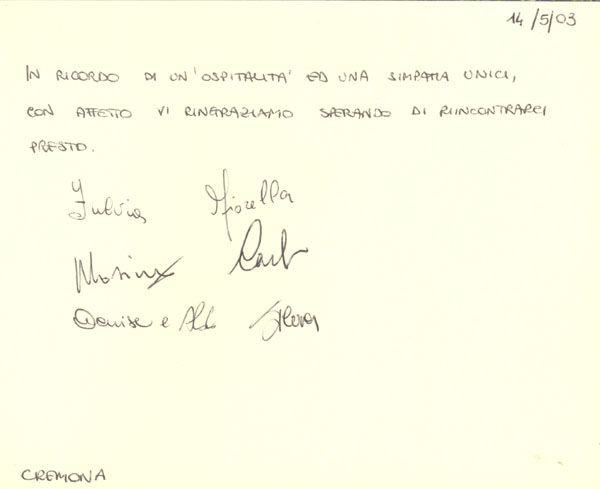 14/5/03
IN RICORDO DI UN'OSPITALITA' ED UNA SIMPATIA UNICI,
CON AFFETTO VI RINGRAZIAMO SPERANDO DI RIINCONTRARCI
PRESTO.
Fulvia Fiorella
Carlo
Denise e Aldo
CREMONA